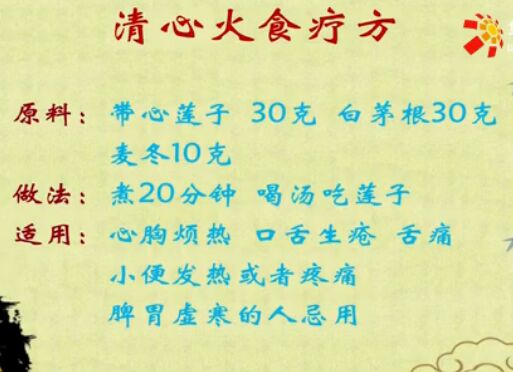 清心火食疗方
原料：带心莲子 30克 白茅根30克
麦冬10克
做法：煮20分钟 喝汤吃莲子
适用：心胸烦热 口舌生疮 舌痛
小便发热或者疼痛
脾胃虚寒的人忌用